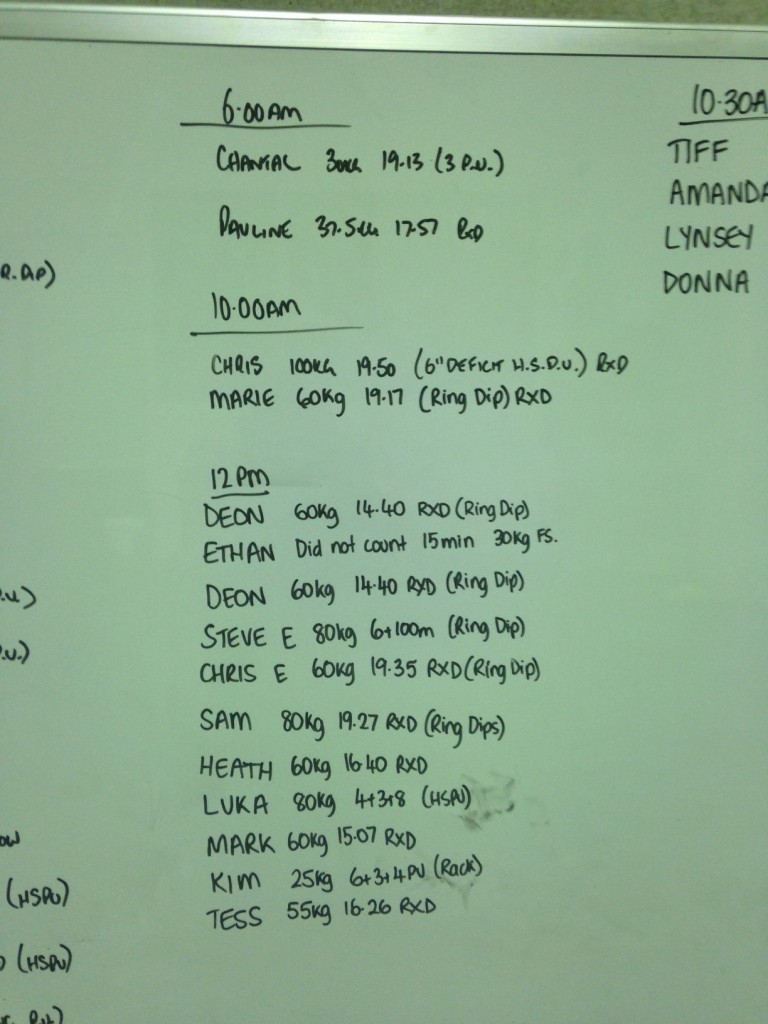 6.00AM
CHANTAL 30KG 19.13 (3 P.U.)
PAULINE 37.5KG 17.57 RXD
10.00AM
CHRIS 100KG 19.50 (6" DEFICIT H.S.P.U.) RXD
MARIE 60Kg 19.17 (Ring Dip) RXD
12PM
DEON 60Kg 14.40 RXD (Ring Dip)
ETHAN Did not count 15min 30Kg FS.
DEON 60kg 14.40 RXD (Ring Dip)
STEVE E 80kg 6+100m (Ring Dip)
CHRIS E 60kg 19.35 RXD (Ring Dip)
SAM 80kg 19.27 RXD (Ring Dips)
HEATH 60kg 16.40 RXD
LUKA 80kg 4+3+8 (HSPU)
MARK 60kg 15.07 RXD
KIM 25kg 6+3+4PU (Rack)
TESS 55kg 16.26 RXD
10.30A
TIFF
AMANDA
LYNSEY
DONNA
R.DIP)
.U.)
.U.)
OW
(HSPU)
(HSPU)